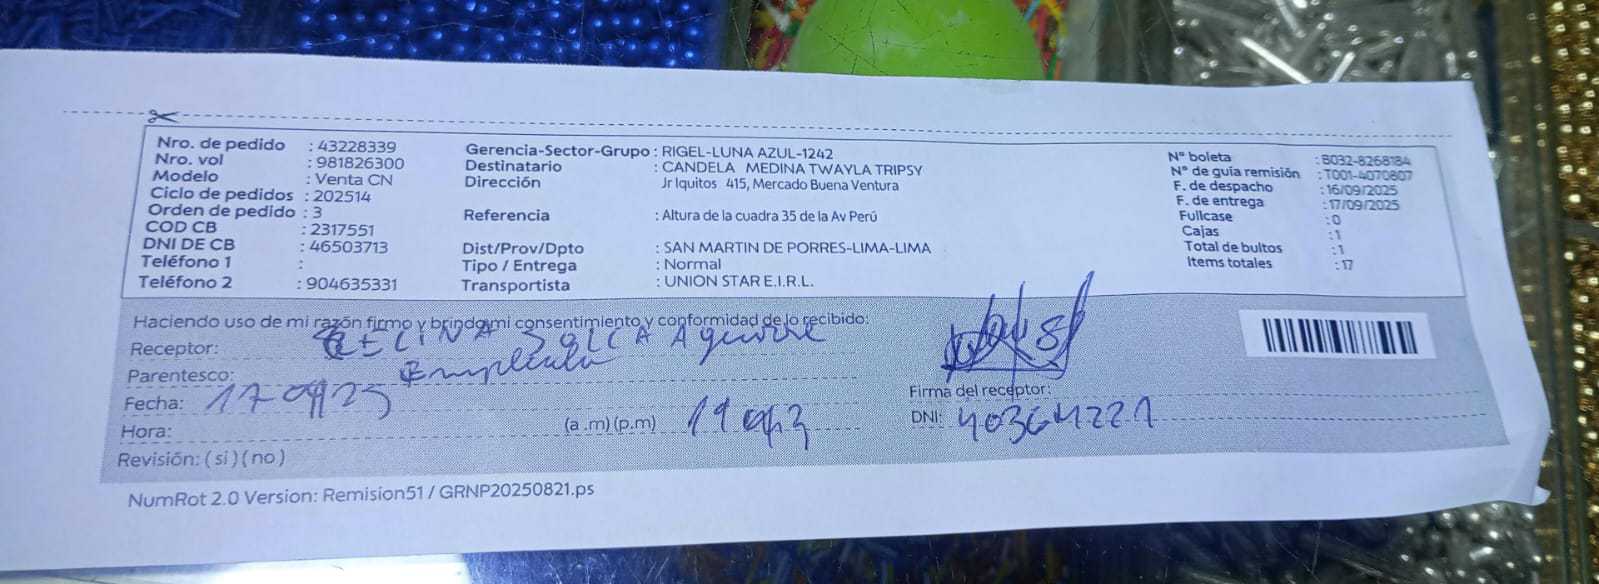 Nro. de pedido : 43228339
Nro. vol : 981826300
Modelo : Venta CN
Ciclo de pedidos : 202514
Orden de pedido : 3
COD CB : 2317551
DNI DE CB : 46503713
Teléfono 1 :
Teléfono 2 : 904635331
Gerencia-Sector-Grupo : RIGEL-LUNA AZUL-1242
Destinatario : CANDELA MEDINA TWAYLA TRIPSY
Dirección Jr Iquitos 415, Mercado Buena Ventura
Referencia : Altura de la cuadra 35 de la Av Perú
Dist/Prov/Dpto : SAN MARTIN DE PORRES-LIMA-LIMA
Tipo / Entrega : Normal
Transportista : UNION STAR E.I.R.L.
N° boleta : B032-8268184
N° de guía remisión : T001-4070807
F. de despacho : 16/09/2025
F. de entrega : 17/09/2025
Fullcase : 0
Cajas : 1
Total de bultos : 1
Items totales : 17
Haciendo uso de mi razón firmo y brindo mi consentimiento y conformidad de lo recibido:
Receptor: Aguirre
Parentesco: Empleada
Fecha: 17 09/25
Hora: (a .m) (p.m)
Revisión: ( si ) ( no )
Firma del receptor:
DNI: 40364221
NumRot 2.0 Version: Remision51 / GRNP20250821.ps